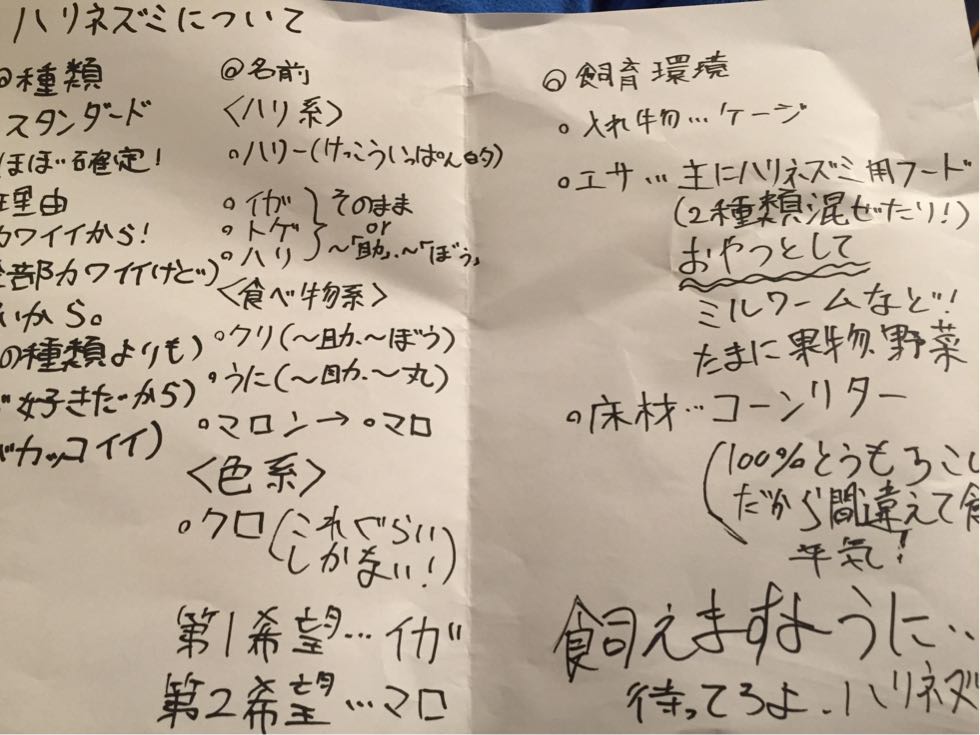 ハリネズミについて
@種類
スタンダード
ほぼ確定!
理由
カワイイから!
全部カワイイけど)
いから。
の種類よりも)
好きだから)
カッコイイ)
@名前
<ハリ系>
・ハリー(けっこういっぱん的)
・イガ
・トゲ
・ハリ
そのまま
or
〜「助」、〜「ぼう」
<食べ物系>
・クリ(〜助、〜ぼう)
・うに(〜助、〜丸)
・マロン→・マロ
<色系>
・クロ(これぐらい
しかない!)
第1希望…イガ
第2希望…マロ
@飼育環境
・入れ物…ケージ
・エサ…主にハリネズミ用フード
(2種類混ぜたり!)
おやつとして
ミルワームなど!
たまに果物、野菜
・床材…コーンリター
(100%とうもろこし
だから間違えて食
平気!
飼えますように…
待ってろよ、ハリネズ